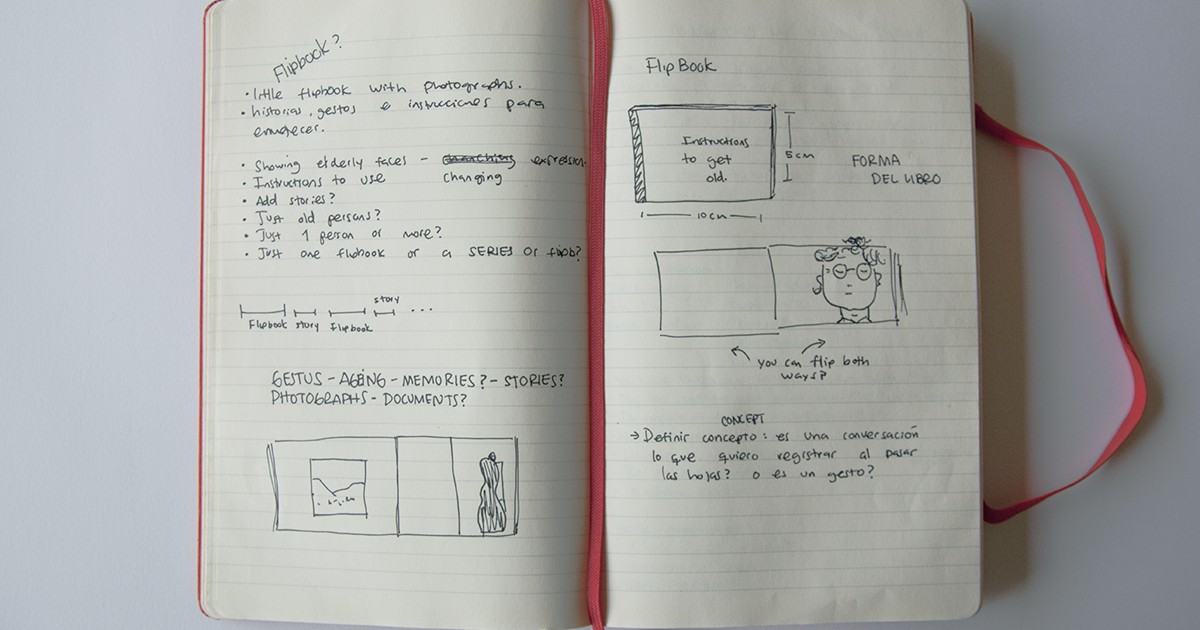 Flipbook?
• little flipbook with photographs.
• historias, gestos e instrucciones para
envejecer.
• Showing elderly faces - expression
changing
• Instructions to use
• Add stories?
• Just old persons?
• Just 1 person or more?
• Just one flipbook or a SERIES of flipb?
story
Flipbook story Flipbook ...
GESTUS - AGEING - MEMORIES? - STORIES?
PHOTOGRAPHS - DOCUMENTS?
FlipBook
Instructions
to get
old.
5cm
10cm
FORMA
DEL LIBRO
you can flip both
ways?
CONCEPT
→ Definir concepto: es una conversación
lo que quiero registrar al pasar
las hojas? o es un gesto?